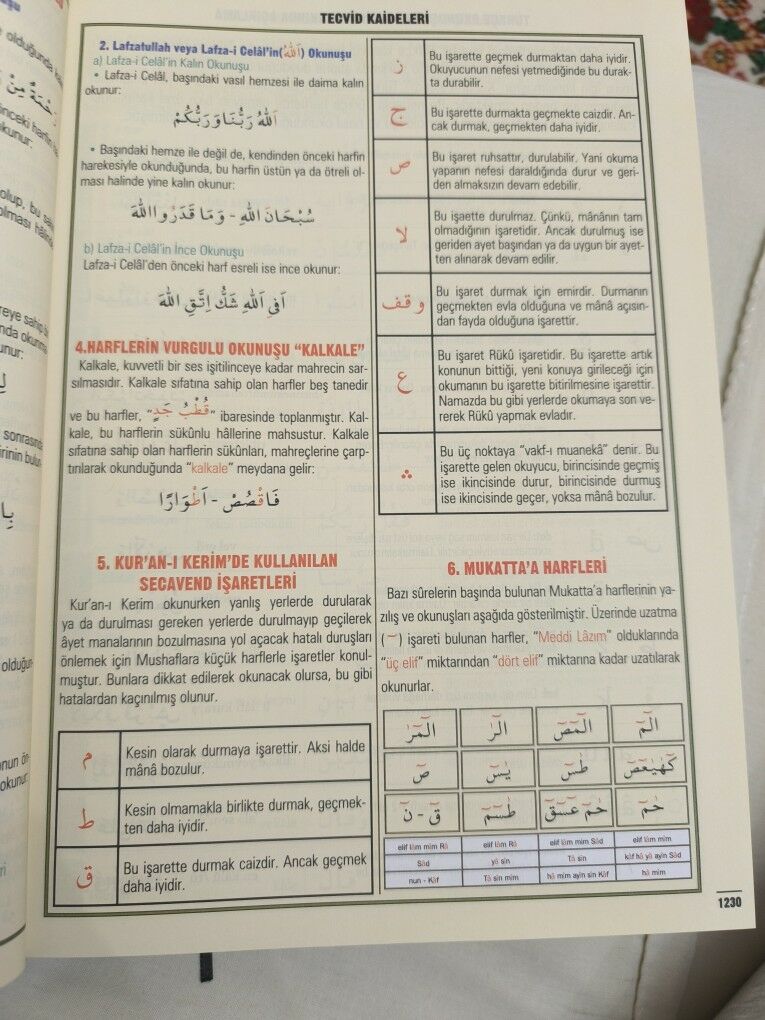 TECVİD KAİDELERİ
2. Lafzatullah veya Lafza-i Celâl'in(اَللّٰهُ) Okunuşu
a) Lafza-i Celâl'in Kalın Okunuşu
• Lafza-i Celâl, başındaki vasıl hemzesi ile daima kalın
okunur:
اَللّٰهُ رَبُّنَا وَرَبُّكُمْ
• Başındaki hemze ile değil de, kendinden önceki harfin
harekesiyle okunduğunda, bu harfin üstün ya da ötreli ol-
ması halinde yine kalın okunur:
سُبْحَانَ اللّٰهِ - وَمَا قَدَرُوا اللّٰهَ
b) Lafza-i Celâl'in İnce Okunuşu
Lafza-i Celâl'den önceki harf esreli ise ince okunur:
اَفِى اللّٰهِ شَكٌّ اِتَّقِ اللّٰهَ
4.HARFLERİN VURGULU OKUNUŞU “KALKALE”
Kalkale, kuvvetli bir ses işitilinceye kadar mahrecin sar-
sılmasıdır. Kalkale sıfatına sahip olan harfler beş tanedir
ve bu harfler, “قُطْبُ جَدٍ” ibaresinde toplanmıştır. Kal-
kale, bu harflerin sükûnlu hâllerine mahsustur. Kalkale
sıfatına sahip olan harflerin sükûnları, mahreçlerine çarp-
tırılarak okunduğunda “kalkale” meydana gelir:
فَاقْصُصْ - اَطْوَارًا
5. KUR'AN-I KERİM'DE KULLANILAN
SECAVEND İŞARETLERİ
Kur'an-ı Kerim okunurken yanlış yerlerde durularak
ya da durulması gereken yerlerde durulmayıp geçilerek
âyet manalarının bozulmasına yol açacak hatalı duruşları
önlemek için Mushaflara küçük harflerle işaretler konul-
muştur. Bunlara dikkat edilerek okunacak olursa, bu gibi
hatalardan kaçınılmış olunur.
م Kesin olarak durmaya işarettir. Aksi halde
mânâ bozulur.
ط Kesin olmamakla birlikte durmak, geçmek-
ten daha iyidir.
ق Bu işarette durmak caizdir. Ancak geçmek
daha iyidir.
ز Bu işarette geçmek durmaktan daha iyidir.
Okuyucunun nefesi yetmediğinde bu durak-
ta durabilir.
ج Bu işarette durmakta geçmekte caizdir. An-
cak durmak, geçmekten daha iyidir.
ص Bu işaret ruhsattır, durulabilir. Yani okuma
yapanın nefesi daraldığında durur ve geri-
den almaksızın devam edebilir.
لا Bu işaette durulmaz. Çünkü, mânânın tam
olmadığının işaretidir. Ancak durulmuş ise
geriden ayet başından ya da uygun bir ayet-
ten alınarak devam edilir.
وقف Bu işaret durmak için emirdir. Durmanın
geçmekten evla olduğuna ve mânâ açısın-
dan fayda olduğuna işarettir.
ع Bu işaret Rükû işaretidir. Bu işarette artık
konunun bittiği, yeni konuya girileceği için
okumanın bu işarette bitirilmesine işarettir.
Namazda bu gibi yerlerde okumaya son ve-
rerek Rükû yapmak evladır.
∴ Bu üç noktaya “vakf-ı muanekâ” denir. Bu
işarette gelen okuyucu, birincisinde geçmiş
ise ikincisinde durur, birincisinde durmuş
ise ikincisinde geçer, yoksa mânâ bozulur.
6. MUKATTA'A HARFLERİ
Bazı sûrelerin başında bulunan Mukatta'a harflerinin ya-
zılış ve okunuşları aşağıda gösterilmiştir. Üzerinde uzatma
(~) işareti bulunan harfler, “Meddi Lâzım” olduklarında
“üç elif” miktarından “dört elif” miktarına kadar uzatılarak
okunurlar.
الٓمٓ الٓمٓصٓ الٓرٰ الٓمٓرٰ
كٓهٰيٰعٓصٓ طٰسٓ يٰسٓ صٓ
حٰمٓ حٰمٓ عٓسٓقٓ طٰسٓمٓ قٓ - نٓ
elif lâm mim Râ elif lâm Râ elif lâm mim Sâd elif lâm mim
Sâd yâ sin Tâ sin kâf hâ yâ ayin Sâd
nun - Kâf Tâ sin mim hâ mim ayin sin Kâf hâ mim
1230